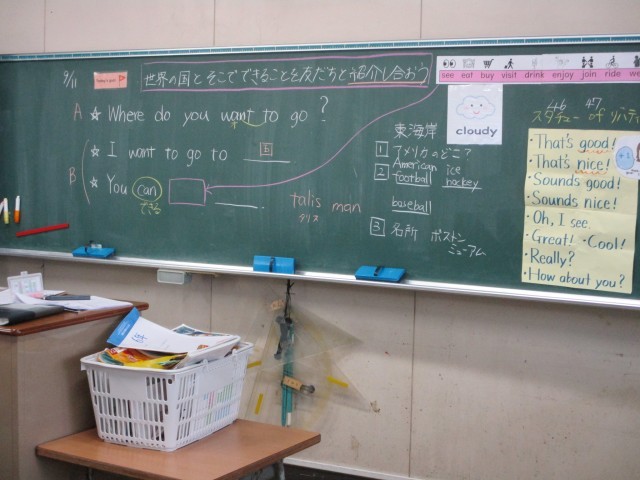 9/11
世界の国とそこでできることを友だちと紹介し合おう
see eat buy visit drink enjoy join ride
A ☆ Where do you want to go?
B ☆ I want to go to 国
☆ You can
cloudy
talis man
タリス
東海岸
1 アメリカのどこ?
2 American football
ice hockey
baseball
3 名所 ボストン
ミュージアム
46 47
スタチュー of リバティ
・That's good!
・That's nice!
・Sounds good!
・Sounds nice!
・Oh, I see.
・Great! ・Cool!
・Really?
・How about you?